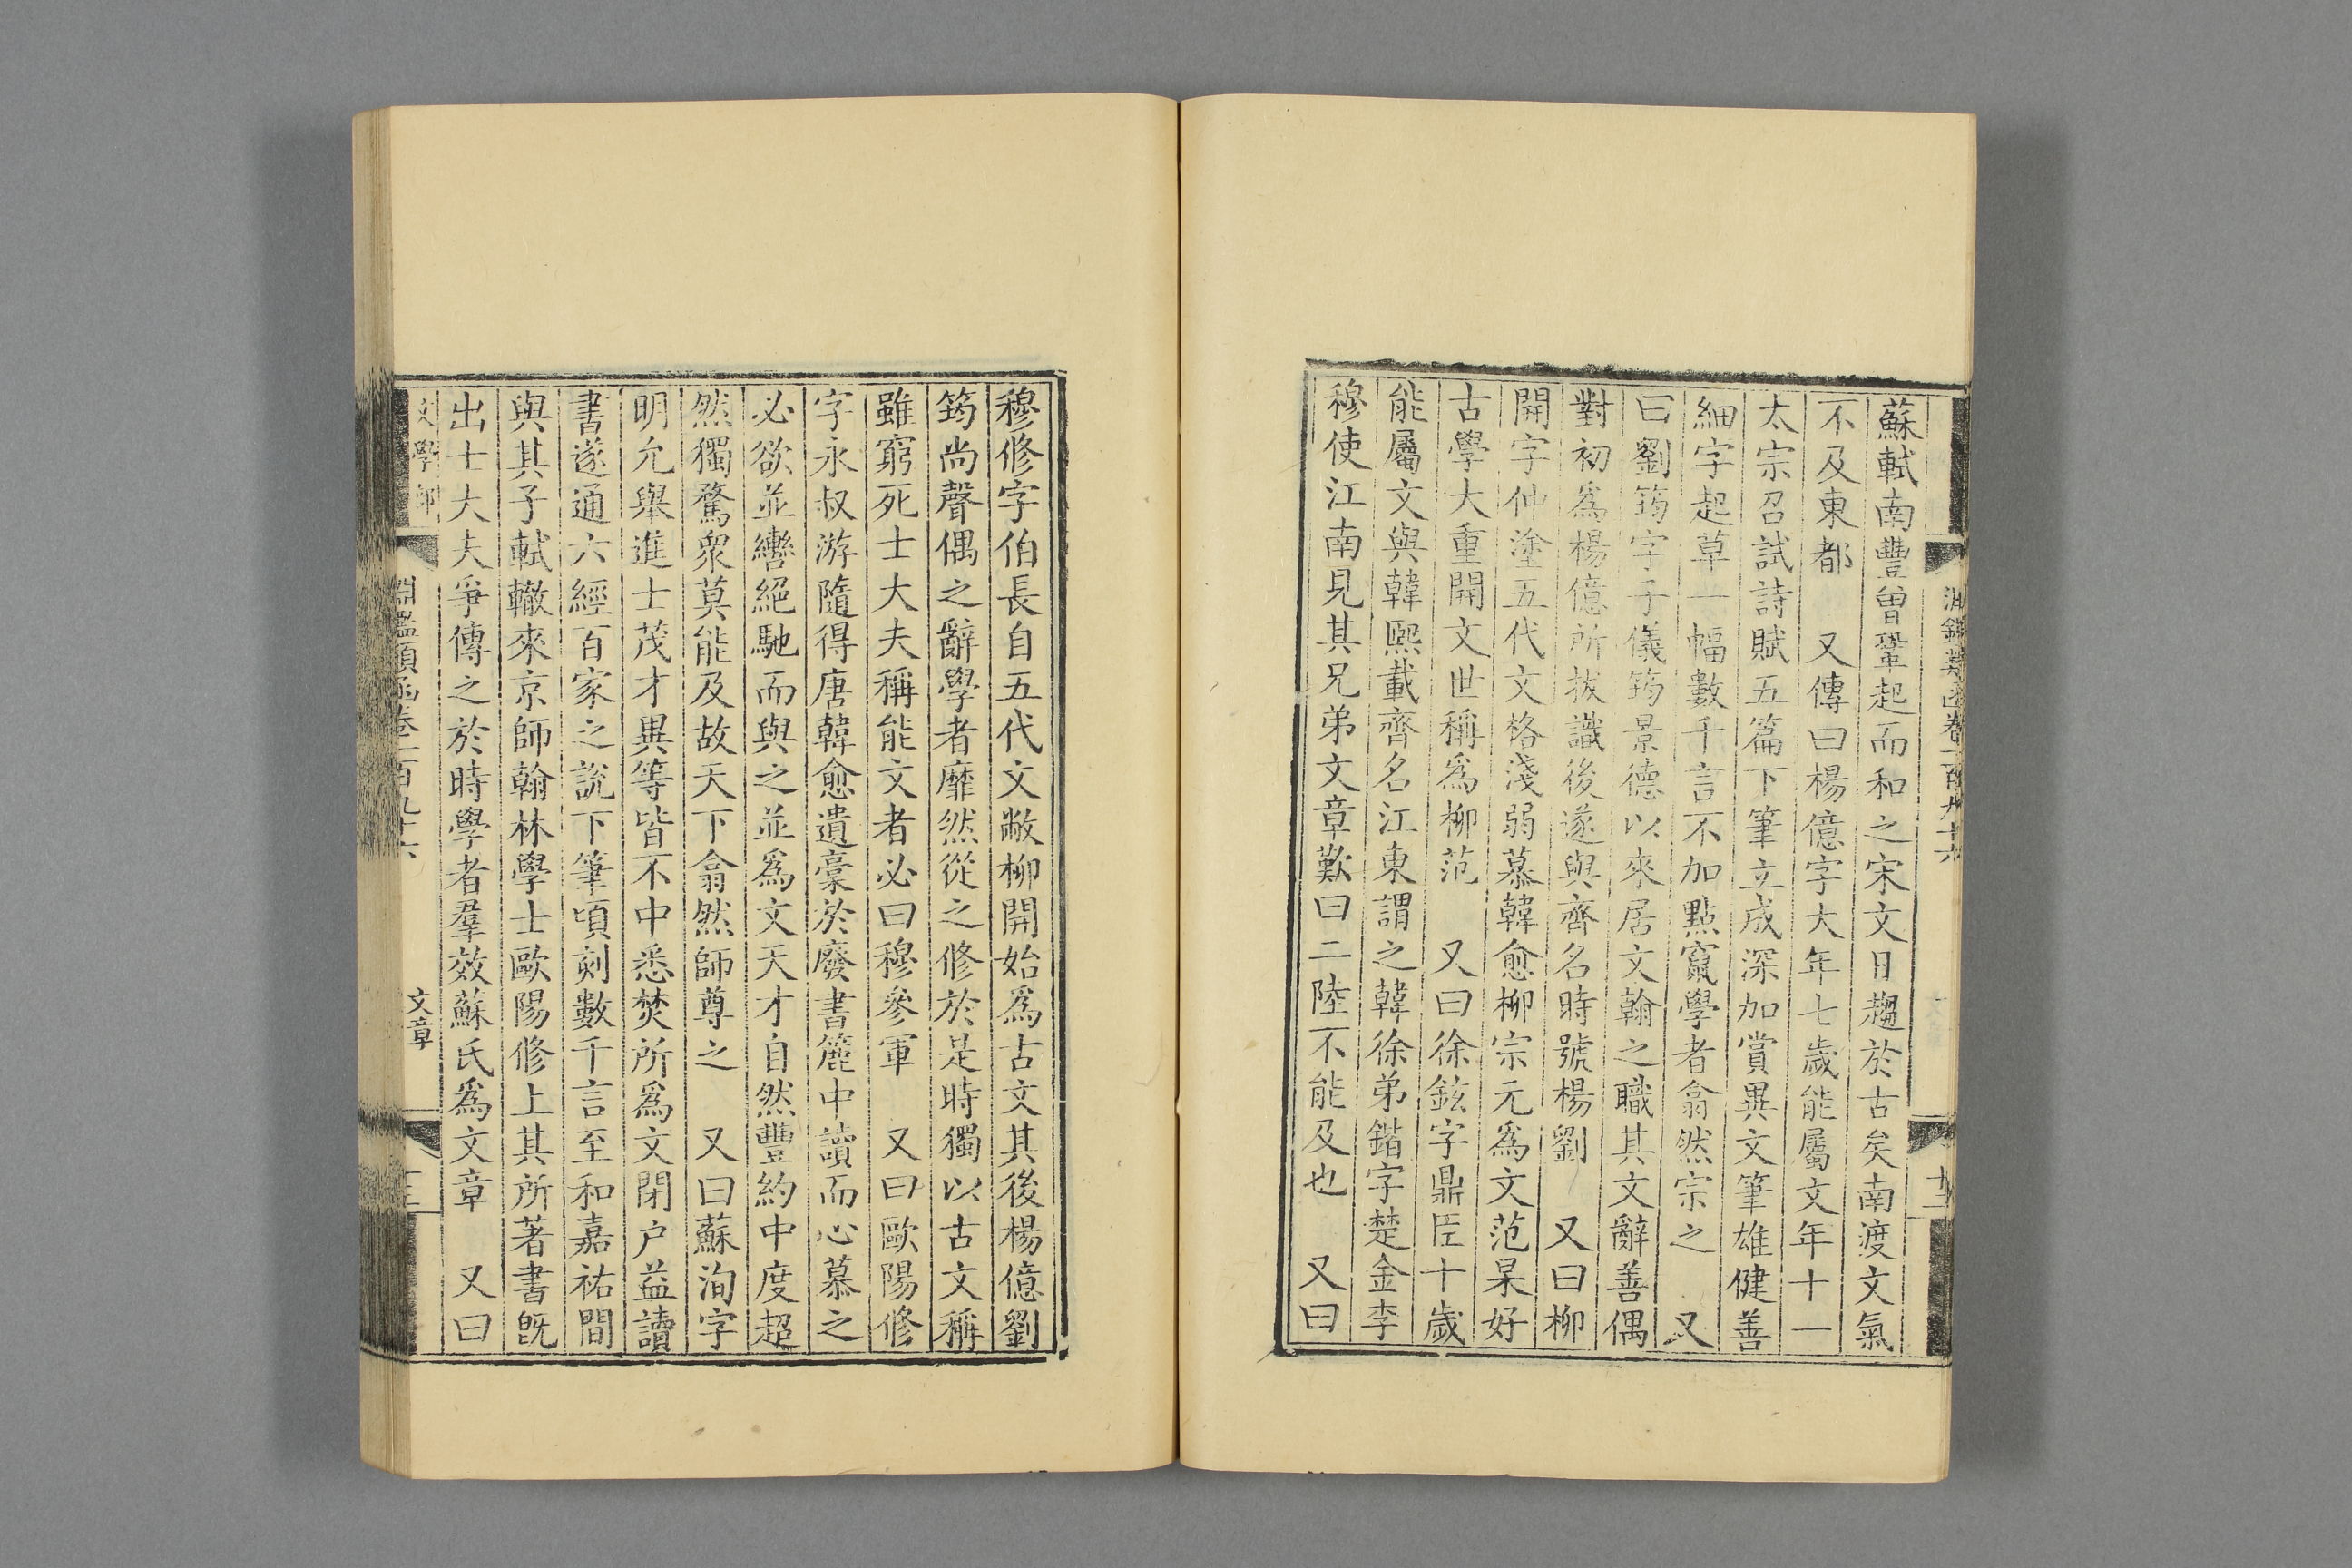 蘇軾南豐曾鞏起而和之宋文日趨於古矣南渡文氣
不及東都　又傳曰楊億字大年七歲能屬文年十一
太宗召試詩賦五篇下筆立成深加賞異文筆雄健善
細字起草一幅數千言不加點竄學者翕然宗之　又
曰劉筠字子儀筠景德以來居文翰之職其文辭善偶
對初爲楊億所拔識後遂與齊名時號楊劉　又曰柳
開字仲塗五代文格淺弱慕韓愈柳宗元爲文范杲好
古學大重開文世稱爲柳范　又曰徐鉉字鼎臣十歲
能屬文與韓熙載齊名江東謂之韓徐弟鍇字楚金李
穆使江南見其兄弟文章歎曰二陸不能及也　又曰
穆修字伯長自五代文敝柳開始爲古文其後楊億劉
筠尚聲偶之辭學者靡然從之修於是時獨以古文稱
雖窮死士大夫稱能文者必曰穆參軍　又曰歐陽修
字永叔游隨得唐韓愈遺稾於廢書簏中讀而心慕之
必欲並轡絕馳而與之並爲文天才自然豐約中度超
然獨騖衆莫能及故天下翕然師尊之　又曰蘇洵字
明允舉進士茂才異等皆不中悉焚所爲文閉户益讀
書遂通六經百家之說下筆頃刻數千言至和嘉祐間
與其子軾轍來京師翰林學士歐陽修上其所著書旣
出士大夫爭傳之於時學者羣效蘇氏爲文章　又曰
文學部
淵鑑類函卷一百九十六
文章